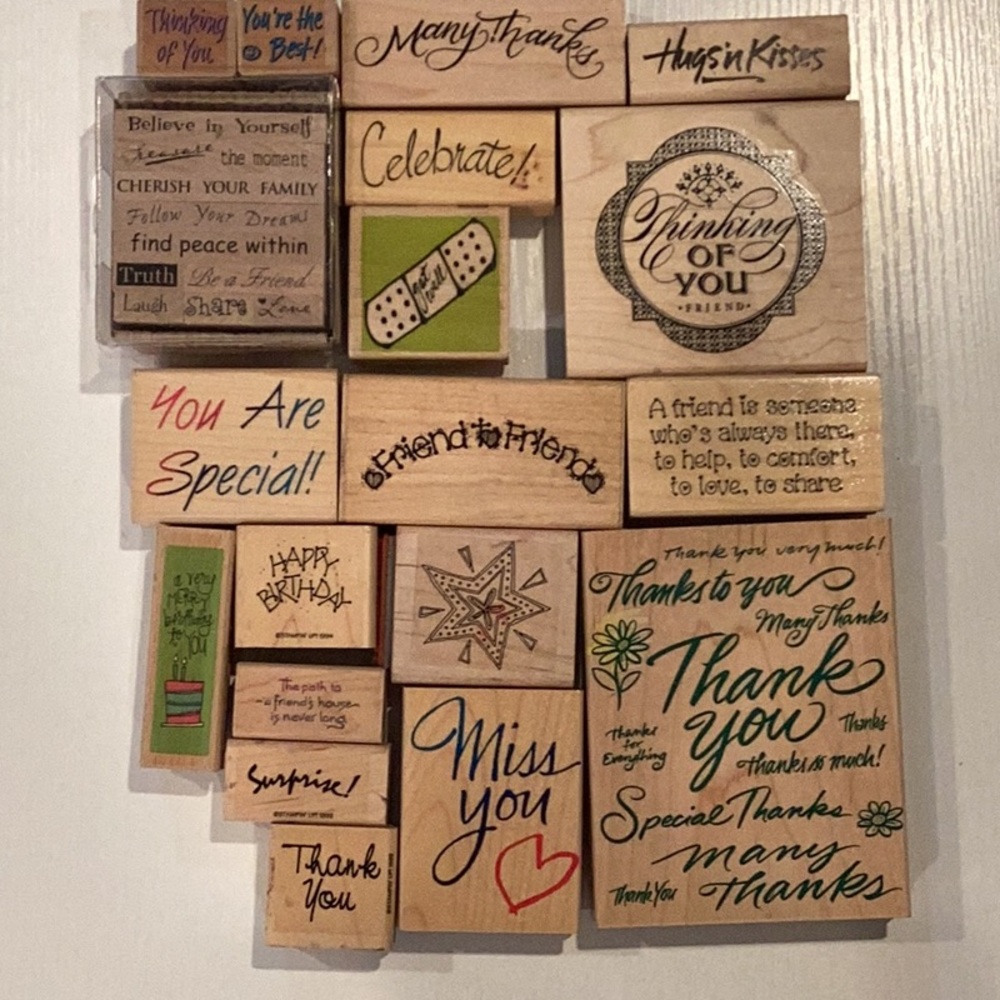 Thinking
of You
You're the
Best!
Many Thanks
Hugs 'n Kisses
Believe in Yourself
Treasure the moment
CHERISH YOUR FAMILY
Follow Your Dreams
find peace within
Truth Be a Friend
Laugh Share Love
Celebrate!
get
well
Thinking
OF
YOU
•FRIEND•
You Are
Special!
Friend to Friend
A friend is someone
who's always there,
to help, to comfort,
to love, to share
a very
merry
birthday
to
you
HAPPY
BIRTHDAY
The path to
a friend's house
is never long.
Surprise!
Thank
You
Miss
you
Thank you very much!
Thanks to you
Many Thanks
Thank
you
Thanks
for
Everything
Thanks
thanks so much!
Special Thanks
many
thanks
Thank You